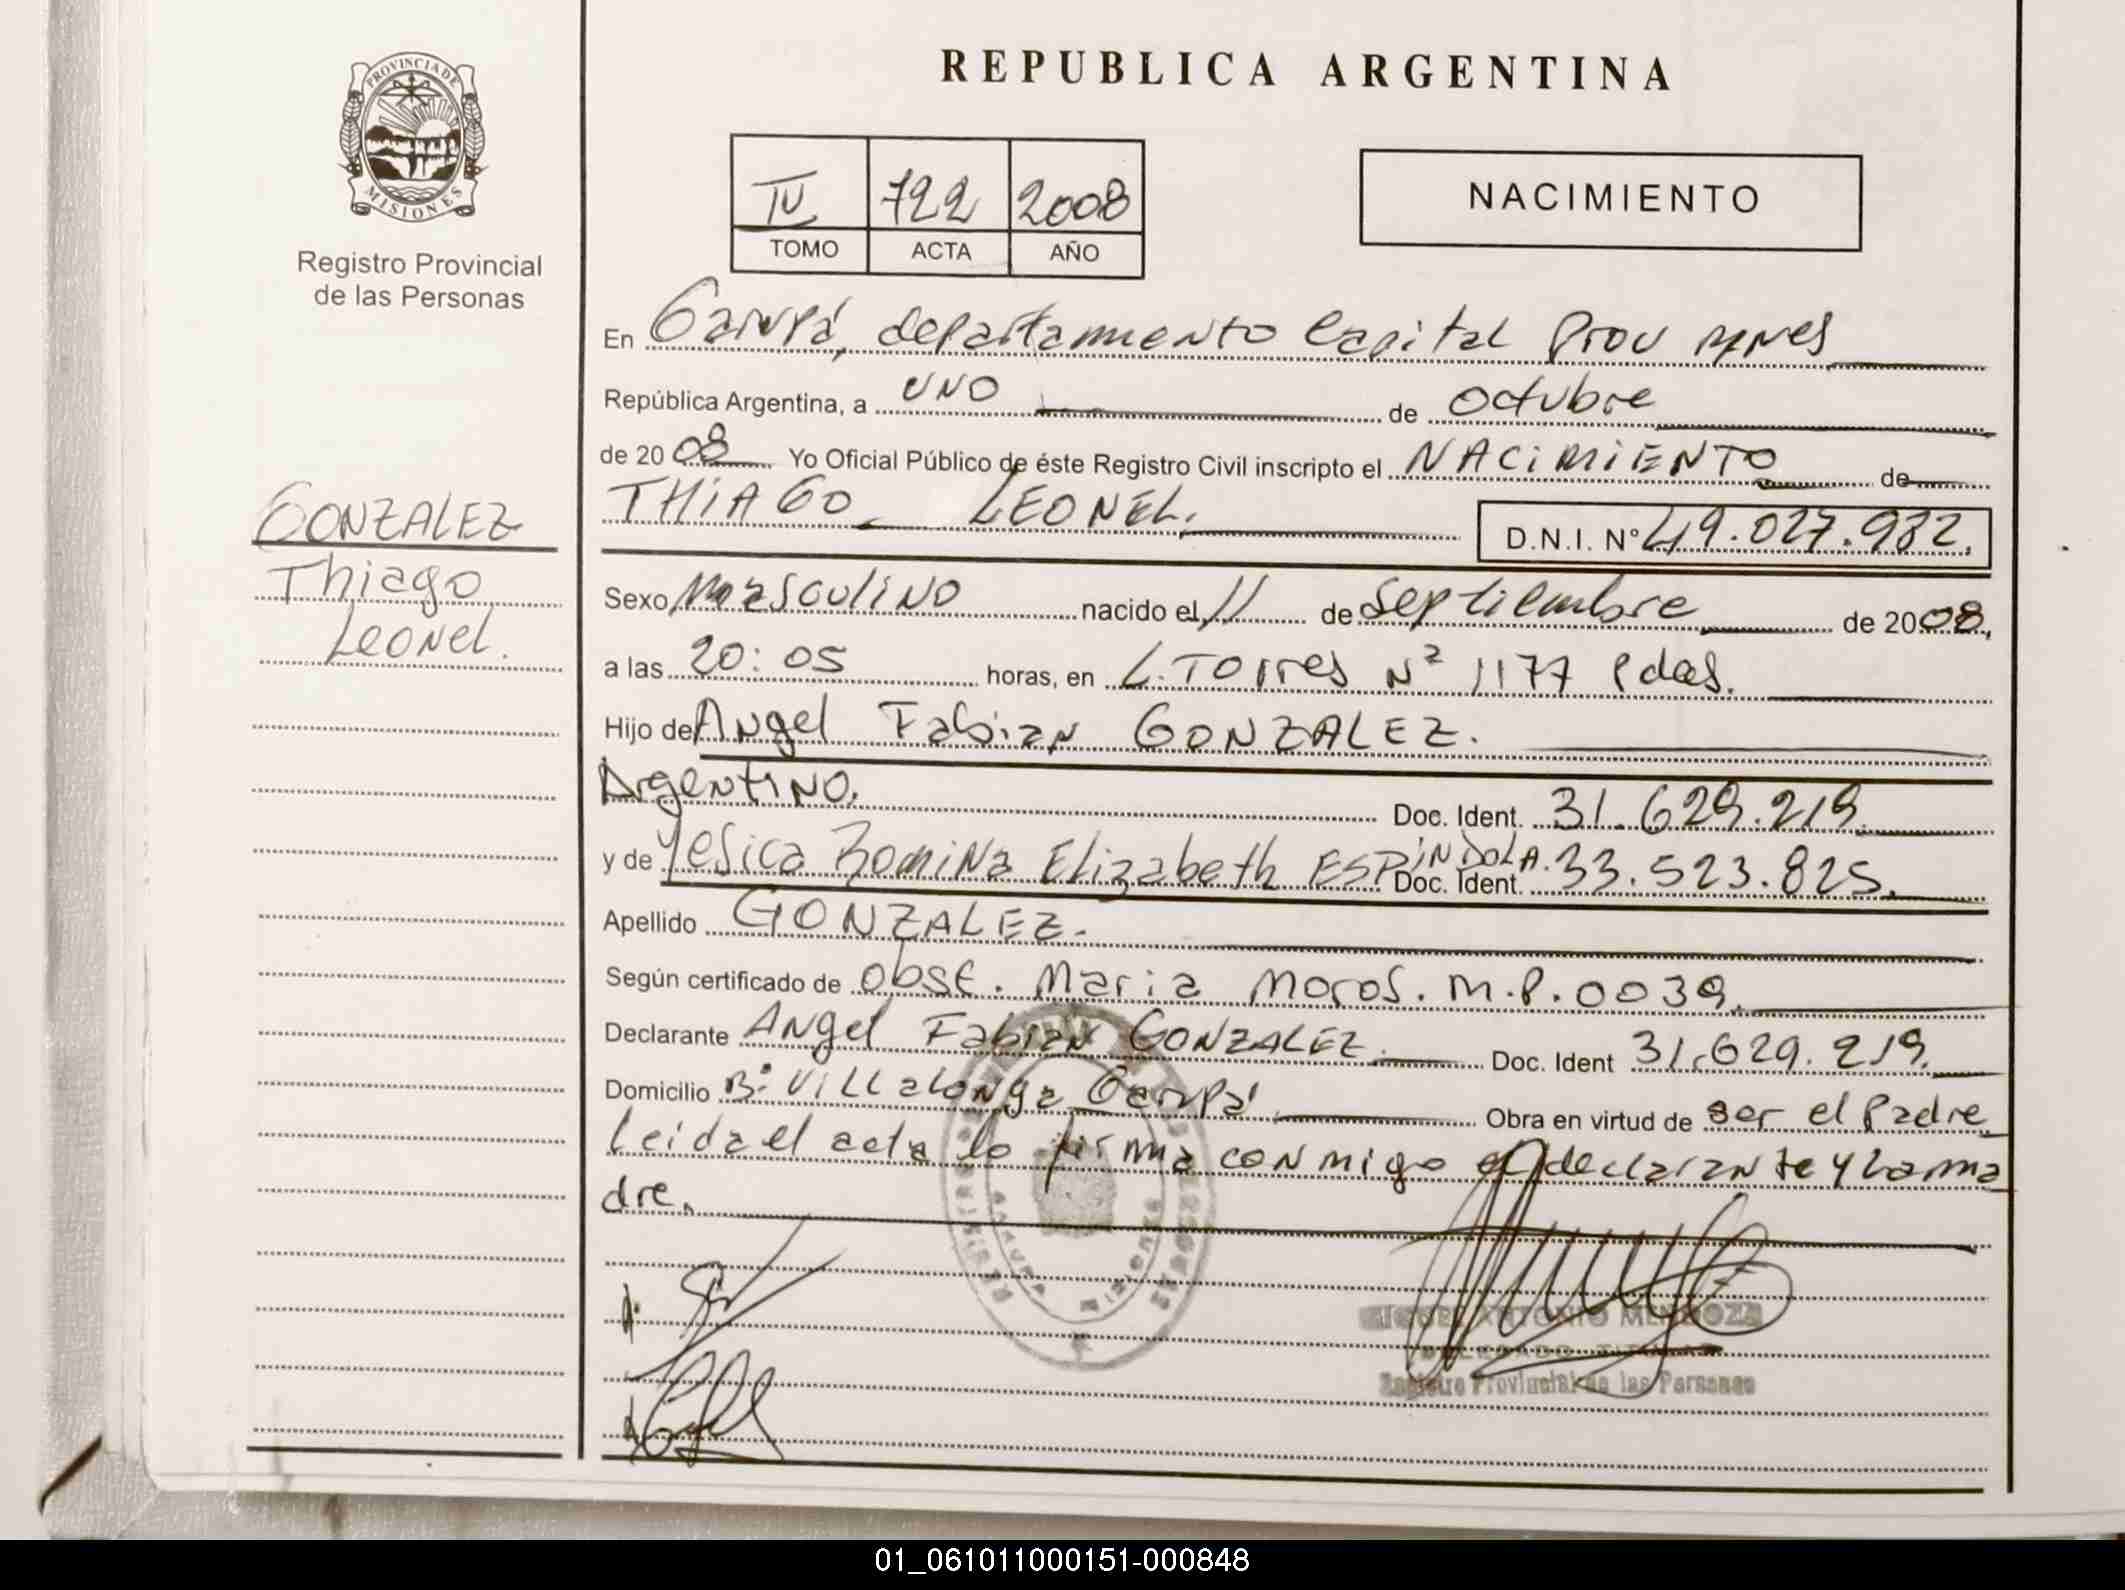 PROVINCIA DE
MISIONES
Registro Provincial
de las Personas
GONZALEZ
Thiago
Leonel.
REPUBLICA ARGENTINA
IV 722 2008
TOMO ACTA AÑO
NACIMIENTO
En Garupá, departamento Capital Prov Mnes
República Argentina, a UNO de octubre
de 2008 Yo Oficial Público de éste Registro Civil inscripto el NACIMIENTO de
THIAGO LEONEL.
D.N.I. Nº 49.027.982.
Sexo Masculino nacido el 11 de Septiembre de 2008,
a las 20:05 horas, en L. Torres Nº 1177 Pdas.
Hijo de Angel Fabian GONZALEZ.
Argentino. Doc. Ident. 31.629.219
y de Yesica Romina Elizabeth ESPINDOLA. Doc. Ident. 33.523.825.
Apellido GONZALEZ.
Según certificado de Obst. Maria Moros. M.P. 0039.
Declarante Angel Fabian GONZALEZ. Doc. Ident 31.629.219.
Domicilio Bº Villalonga Garupá Obra en virtud de ser el Padre
Leida el acta lo firma conmigo el declarante y la ma
dre.
ANTONIO MENDOZA
DELEGADO TITULAR
Registro Provincial de las Personas
01_061011000151-000848